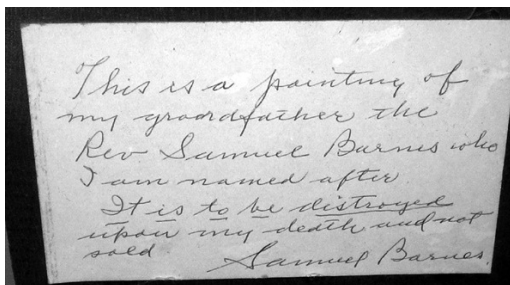 This is a painting of
my grandfather the
Rev Samuel Barnes who
I am named after
It is to be distroyed
upon my death and not
sold
Samuel Barnes.